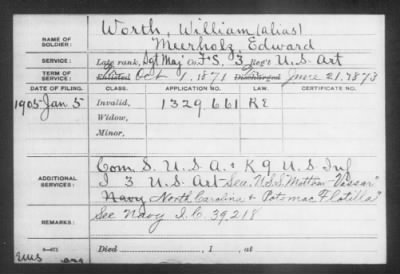 NAME OF SOLDIER: Worth, William (alias)
Meerholz, Edward
SERVICE: Late rank, Sgt Maj Co. F+S, 3 Reg't U.S. Art
TERM OF SERVICE: Enlisted Oct 1, 1871 Discharged June 21, 1873
DATE OF FILING. CLASS. APPLICATION NO. LAW. CERTIFICATE NO.
1905 Jan 5 Invalid, 1329661 RE
Widow,
Minor,
ADDITIONAL SERVICES: Com. S. U.S.A. + K 9 U.S. Inf
I 3 U.S. Art - Sea. U.S.S. Vassar"
Navy North Carolina + Potomac Flotilla"
REMARKS: See Navy I.C. 39,218
Died , 1 , at